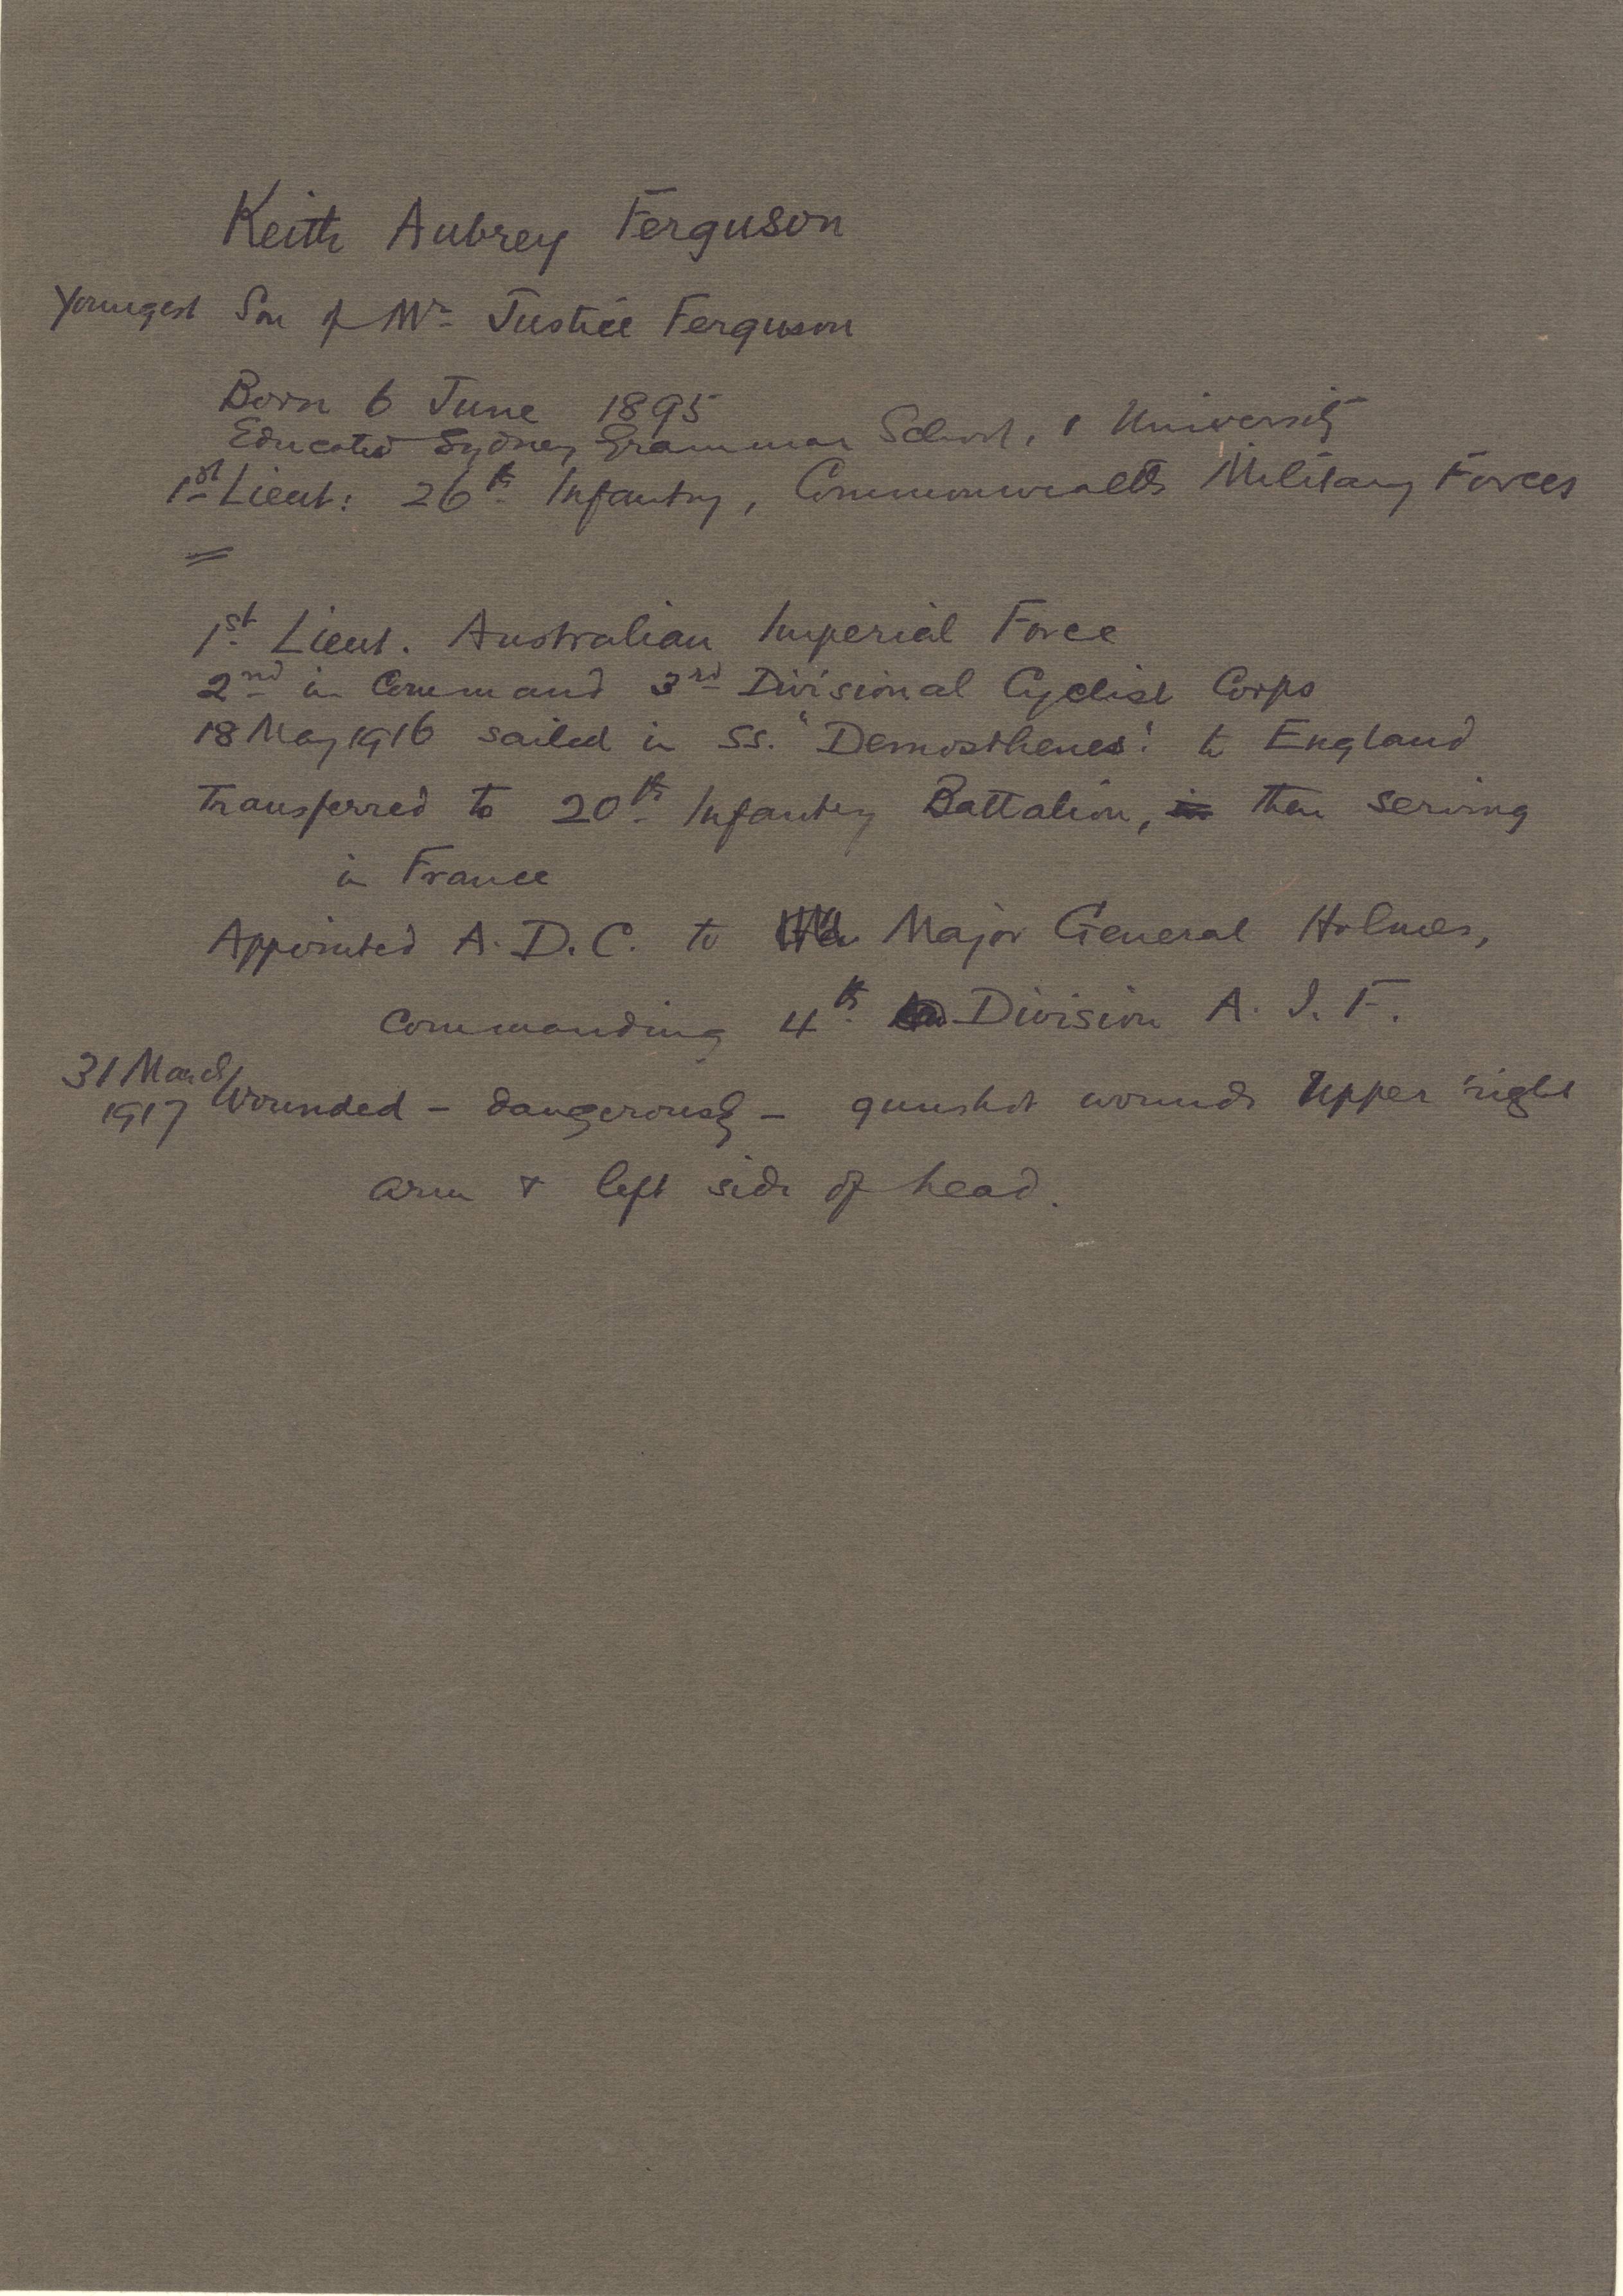 Keith Aubrey Ferguson
Youngest Son of Mr Justice Ferguson
Born 6 June 1895
Educated Sydney Grammar School, & University
1st Lieut: 26th Infantry, Commonwealth Military Forces
1st Lieut. Australian Imperial Force
2nd in Command 3rd Divisional Cyclist Corps
18 May 1916 sailed in SS. 'Demosthenes' to England
Transferred to 20th Infantry Battalion, in then serving
in France
Appointed A.D.C. to Major General Holmes,
Commanding 4th Division A.I.F.
31 March
1917 Wounded - dangerously - gunshot wounds Upper right
arm & left side of head.